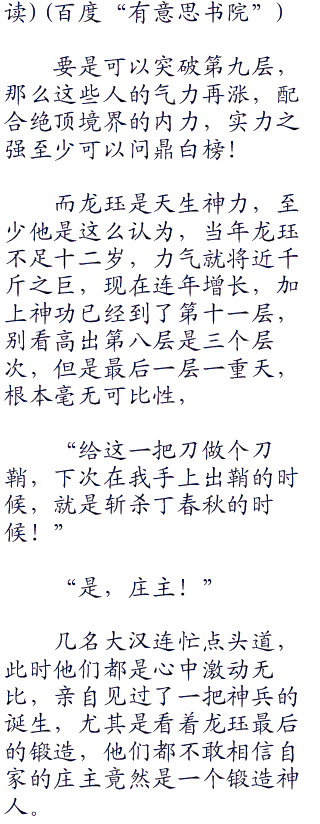 读)(百度“有意思书院”)
要是可以突破第九层，
那么这些人的气力再涨，配
合绝顶境界的内力，实力之
强至少可以问鼎白榜！
而龙珏是天生神力，至
少他是这么认为，当年龙珏
不足十二岁，力气就将近千
斤之巨，现在连年增长，加
上神功已经到了第十一层，
别看高出第八层是三个层
次，但是最后一层一重天，
根本毫无可比性，
“给这一把刀做个刀
鞘，下次在我手上出鞘的时
候，就是斩杀丁春秋的时
候！”
“是，庄主！”
几名大汉连忙点头道，
此时他们都是心中激动无
比，亲自见过了一把神兵的
诞生，尤其是看着龙珏最后
的锻造，他们都不敢相信自
家的庄主竟然是一个锻造神
人。